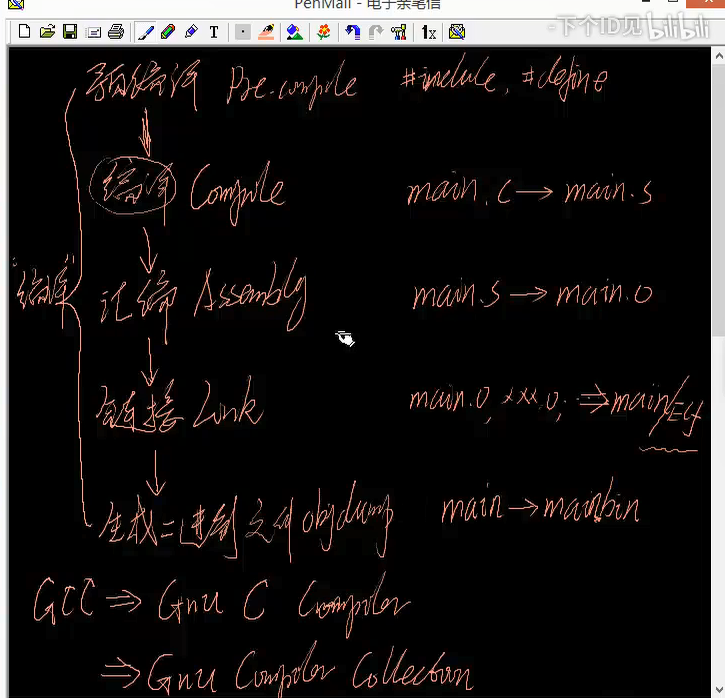 PenMail - 电子亲笔信
T 1x
-下个ID见 bilibili
预编译 Pre.compile #include, #define
编译 Compile main.c → main.s
"编译"
汇编 Assembly main.s → main.o
链接 Link main.o, xxx.o, ⇒ main/Elf
生成二进制文件 objdump main → main.bin
GCC ⇒ Gnu C Compiler
⇒ Gnu Compiler Collection